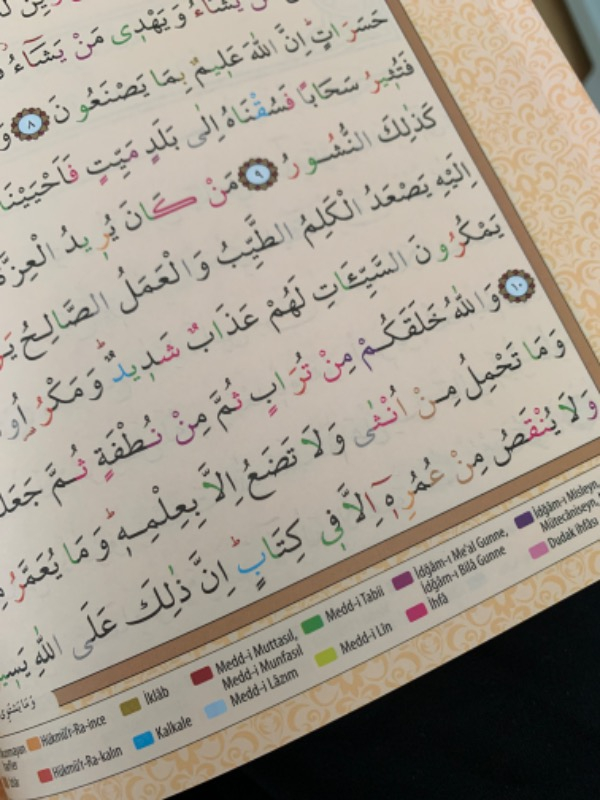 يَشَٓاءُ وَيَهْدٖى مَنْ يَشَٓاءُ
حَسَرَاتٍؕ اِنَّ اللّٰهَ عَلٖيمٌ بِمَا يَصْنَعُونَ ﴿٨﴾
فَتُثٖيرُ سَحَابًا فَسُقْنَاهُ اِلٰى بَلَدٍ مَيِّتٍ فَاَحْيَيْنَا
كَذٰلِكَ النُّشُورُ ﴿٩﴾ مَنْ كَانَ يُرٖيدُ الْعِزَّةَ
اِلَيْهِ يَصْعَدُ الْكَلِمُ الطَّيِّبُ وَالْعَمَلُ الصَّالِحُ
يَمْكُرُونَ السَّيِّـَٔاتِ لَهُمْ عَذَابٌ شَدٖيدٌؕ وَمَكْرُ
﴿١٠﴾ وَاللّٰهُ خَلَقَكُمْ مِنْ تُرَابٍ ثُمَّ مِنْ نُطْفَةٍ ثُمَّ جَعَلَ
وَمَا تَحْمِلُ مِنْ اُنْثٰى وَلَا تَضَعُ اِلَّا بِعِلْمِهٖؕ وَمَا يُعَمَّرُ
وَلَا يُنْقَصُ مِنْ عُمُرِهٖٓ اِلَّا فٖى كِتَابٍؕ اِنَّ ذٰلِكَ عَلَى اللّٰهِ
وَمَا يَسْتَوِى
Hükmü'r-Ra-ince İklâb Medd-i Muttasıl, Medd-i Munfasıl Medd-i Tabii İdğâm-ı Me'al Gunne, İdğâm-ı Bilâ Gunne İdğâm-ı Misleyn, Mütecâniseyn,
Hükmü'r-Ra-kalın Kalkale Medd-i Lâzım Medd-i Lîn İhfâ Dudak ihfâsı